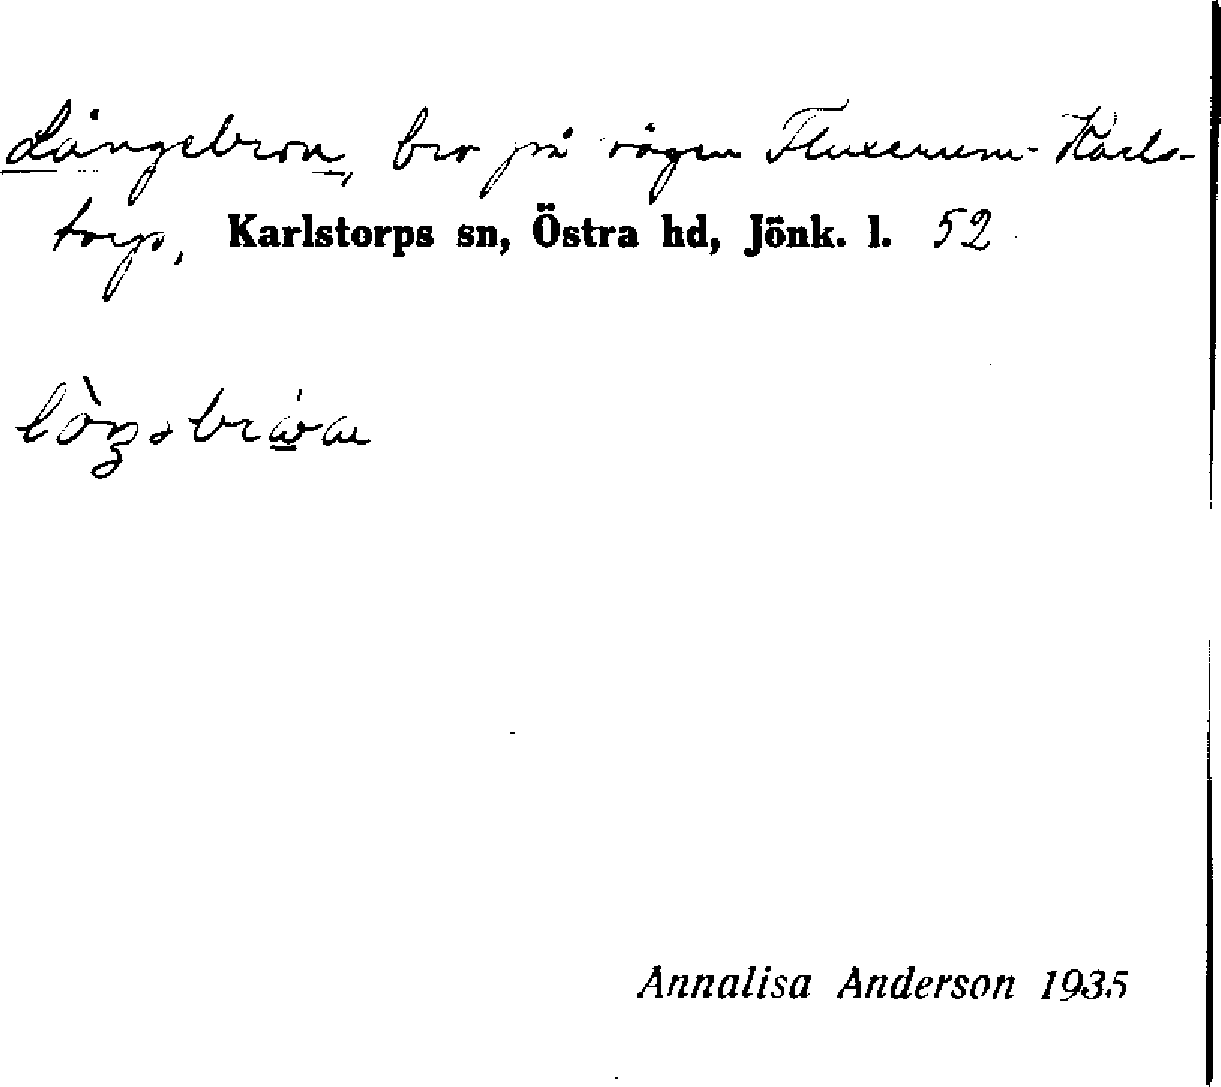 Långebron, bro på vägen Fluxerum-Karls-
torp, Karlstorps sn, Östra hd, Jönk. l. 52
Annalisa Anderson 1935